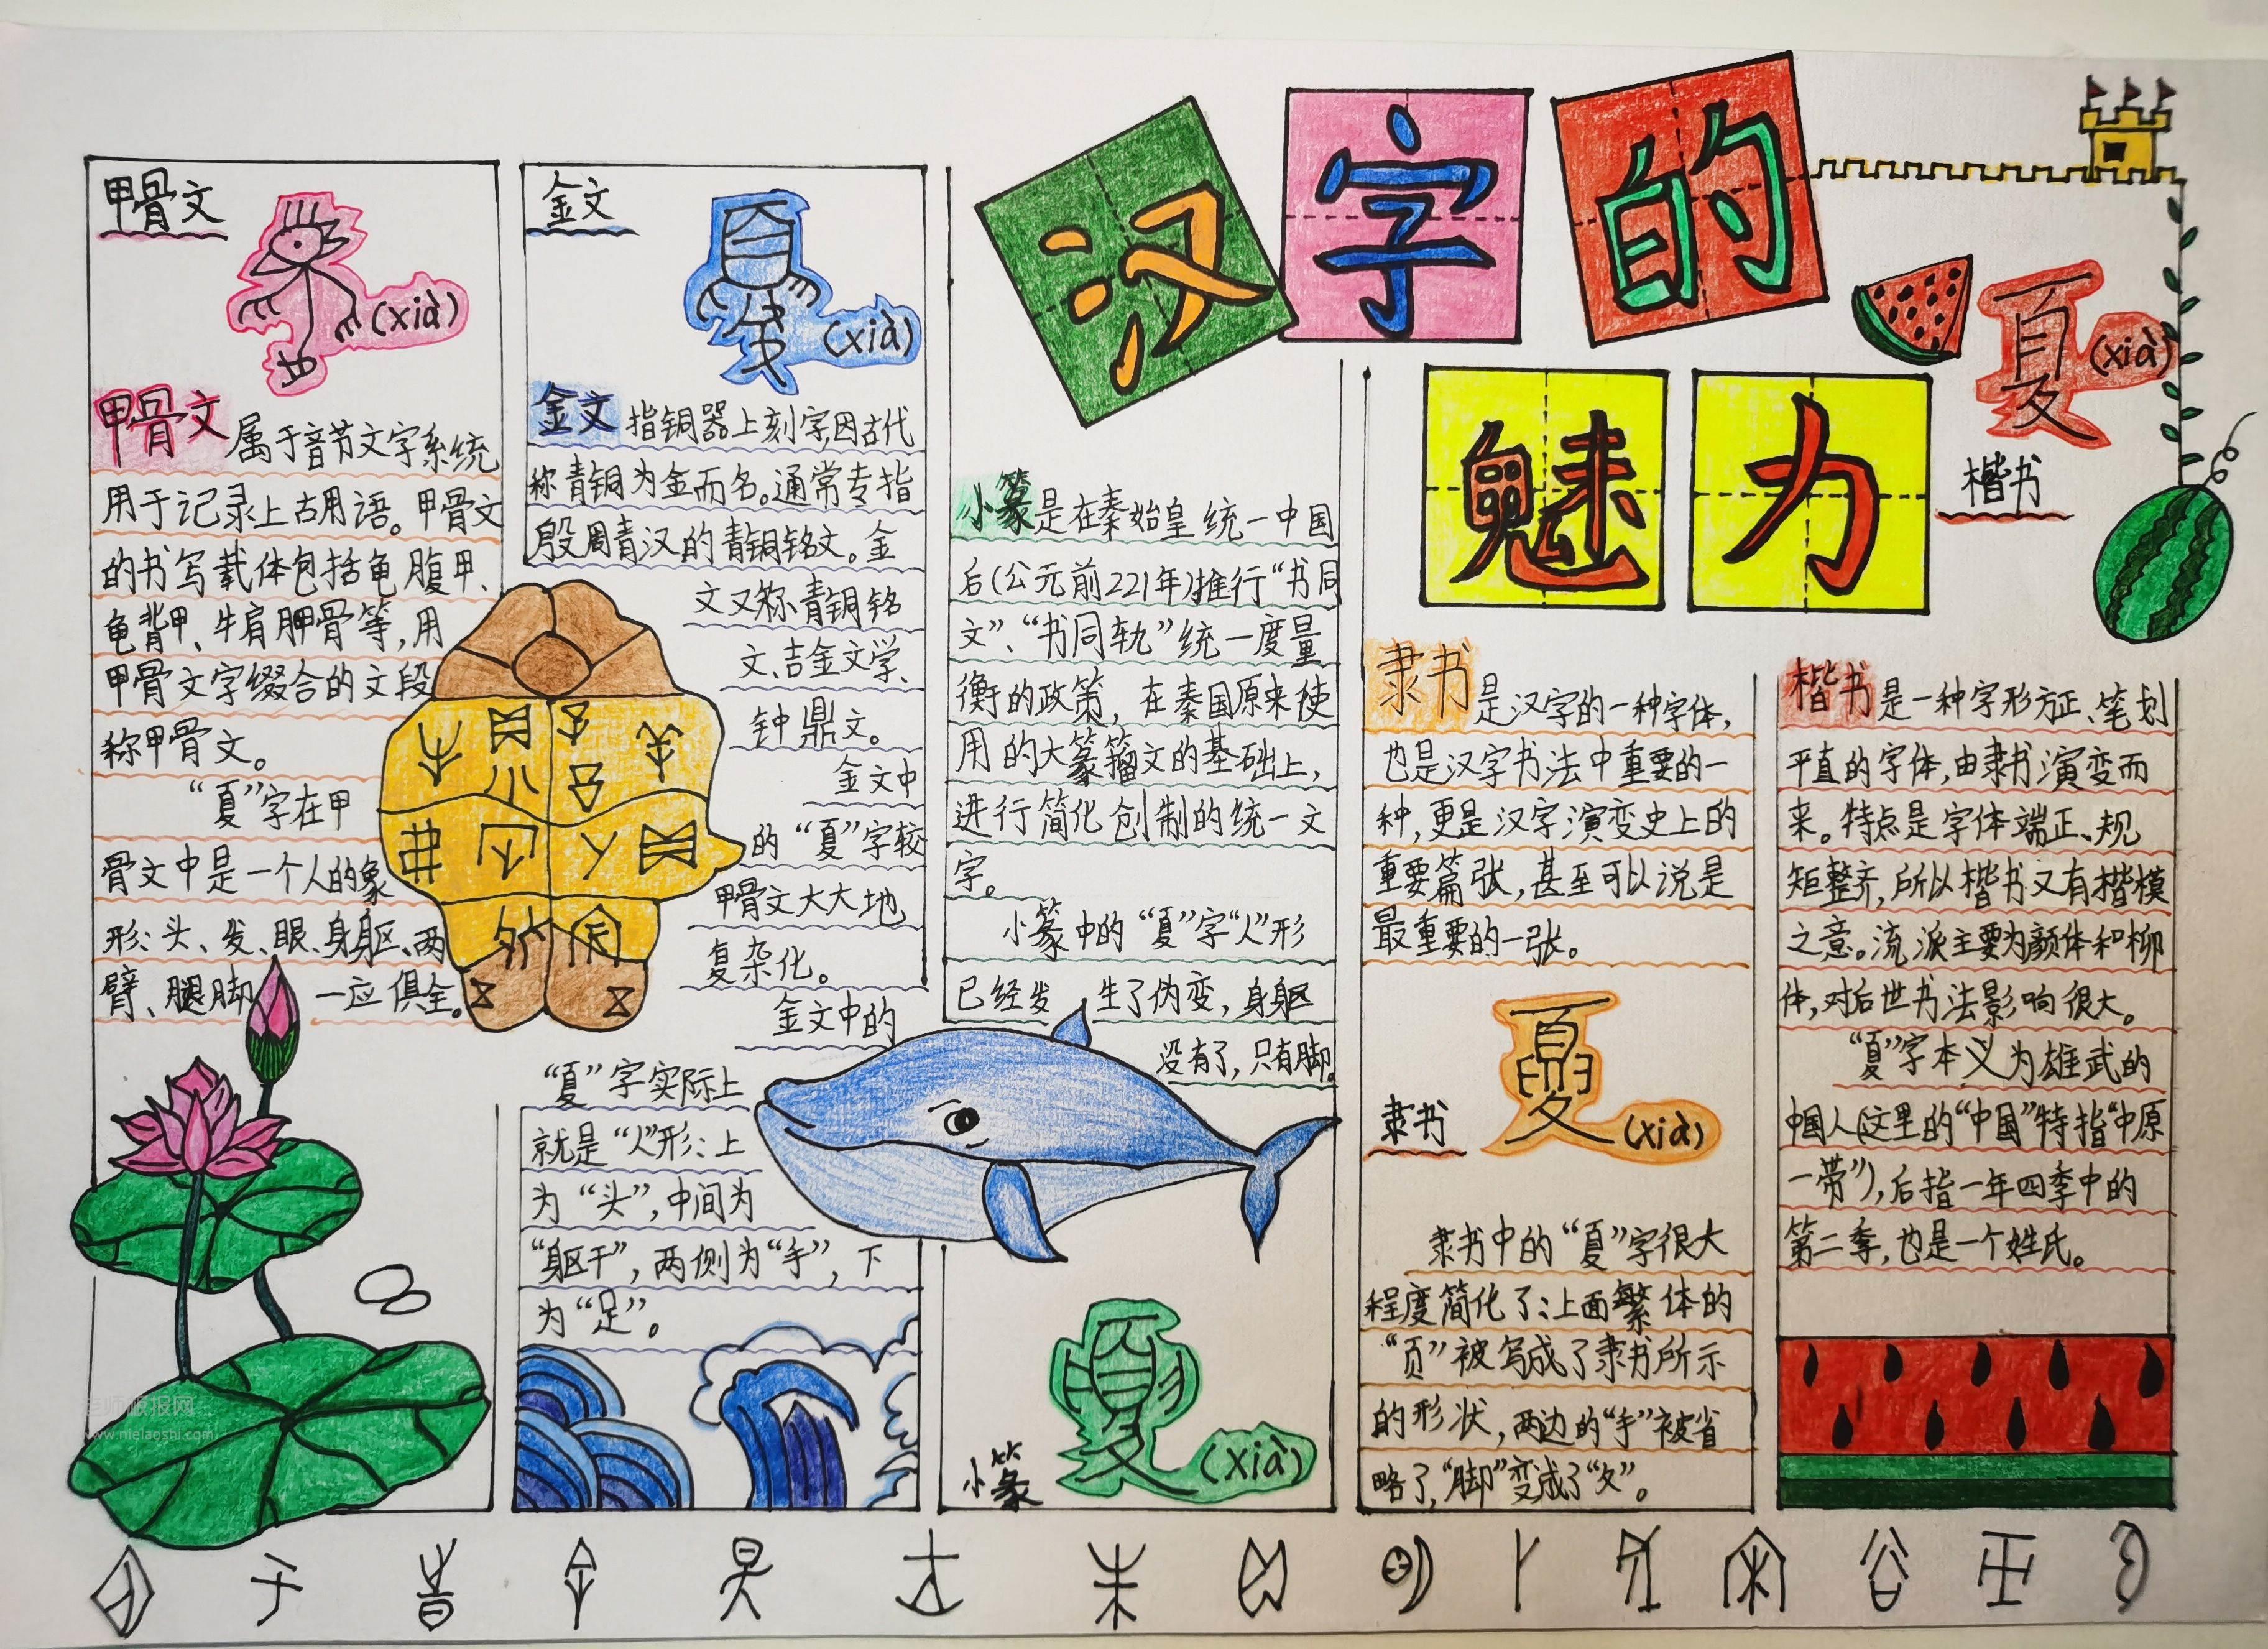 汉字的
魅力
甲骨文
(xià)
甲骨文属于音节文字系统
用于记录上古用语。甲骨文
的书写载体包括龟腹甲、
龟背甲、牛肩胛骨等,用
甲骨文字缀合的文段
称甲骨文。
“夏”字在甲
骨文中是一个人的象
形:头、发、眼、身躯、两
臂、腿脚一应俱全。
金文
(xià)
金文指铜器上刻字,因古代
称青铜为金而名。通常专指
殷周青汉的青铜铭文。金
文又称青铜铭
文、吉金文学、
钟鼎文。
金文中
的“夏”字较
甲骨文大大地
复杂化。
金文中的
“夏”字实际上
就是“人”形:上
为“头”,中间为
“躯干”,两侧为“手”,下
为“足”。
小篆是在秦始皇统一中国
后(公元前221年)推行“书同
文”、“书同轨”统一度量
衡的政策,在秦国原来使
用的大篆籀文的基础上,
进行简化创制的统一文
字。
小篆中的“夏”字“人”形
已经发生了伪变,身躯
没有了,只有脚。
夏
(xià)
小篆
隶书是汉字的一种字体,
也是汉字书法中重要的一
种,更是汉字演变史上的
重要篇张,甚至可以说是
最重要的一张。
夏
隶书
(xià)
隶书中的“夏”字很大
程度简化了:上面繁体的
“页”被写成了隶书所示
的形状,两边的“手”被省
略了,“脚”变成了“夂”。
夏
(xià)
楷书
楷书是一种字形方正、笔划
平直的字体,由隶书演变而
来。特点是字体端正、规
矩整齐,所以楷书又有楷模
之意。流派主要为颜体和柳
体,对后世书法影响很大。
“夏”字本义为雄武的
中国人(这里的“中国”特指“中原
一带”),后指一年四季中的
第二季,也是一个姓氏。
www.mielaoshi.com